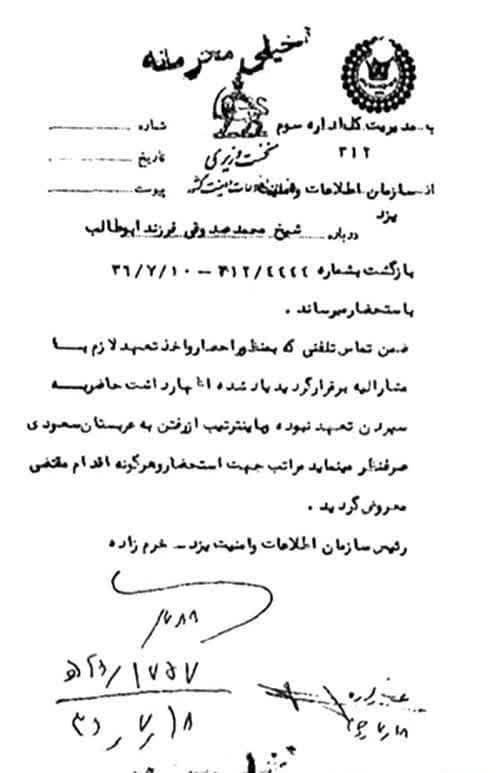 خیلی محرمانه
به مدیریت کل اداره سوم
۳۱۲
شماره
نخست وزیری
تاریخ
از سازمان اطلاعات و امنیت
پیوست
یزد
درباره شیخ محمد صدوقی فرزند ابوطالب
بازگشت بشماره ۳۱۲/٤٤٤٤ – ۳۶/۷/۱۰
باستحضار میرساند .
ضمن تماس تلفنی که بمنظور احضار و اخذ تعهد لازم با
مشارالیه برقرار گردید یاد شده اظهار داشت حاضر به
سپردن تعهد نبوده و باینترتیب از رفتن به عربستان سعودی
صرفنظر مینماید مراتب جهت استحضار و هرگونه اقدام مقتضی
معروض گردید .
رئیس سازمان اطلاعات و امنیت یزد – خرم زاده